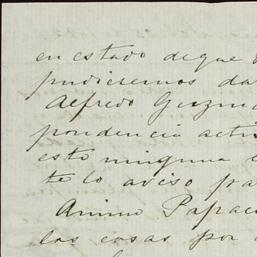 en estado de que
pudieremos da
Alfredo Guzma
pondencia acti
este ninguna
te lo aviso pa
Animo Papa
las cosas por